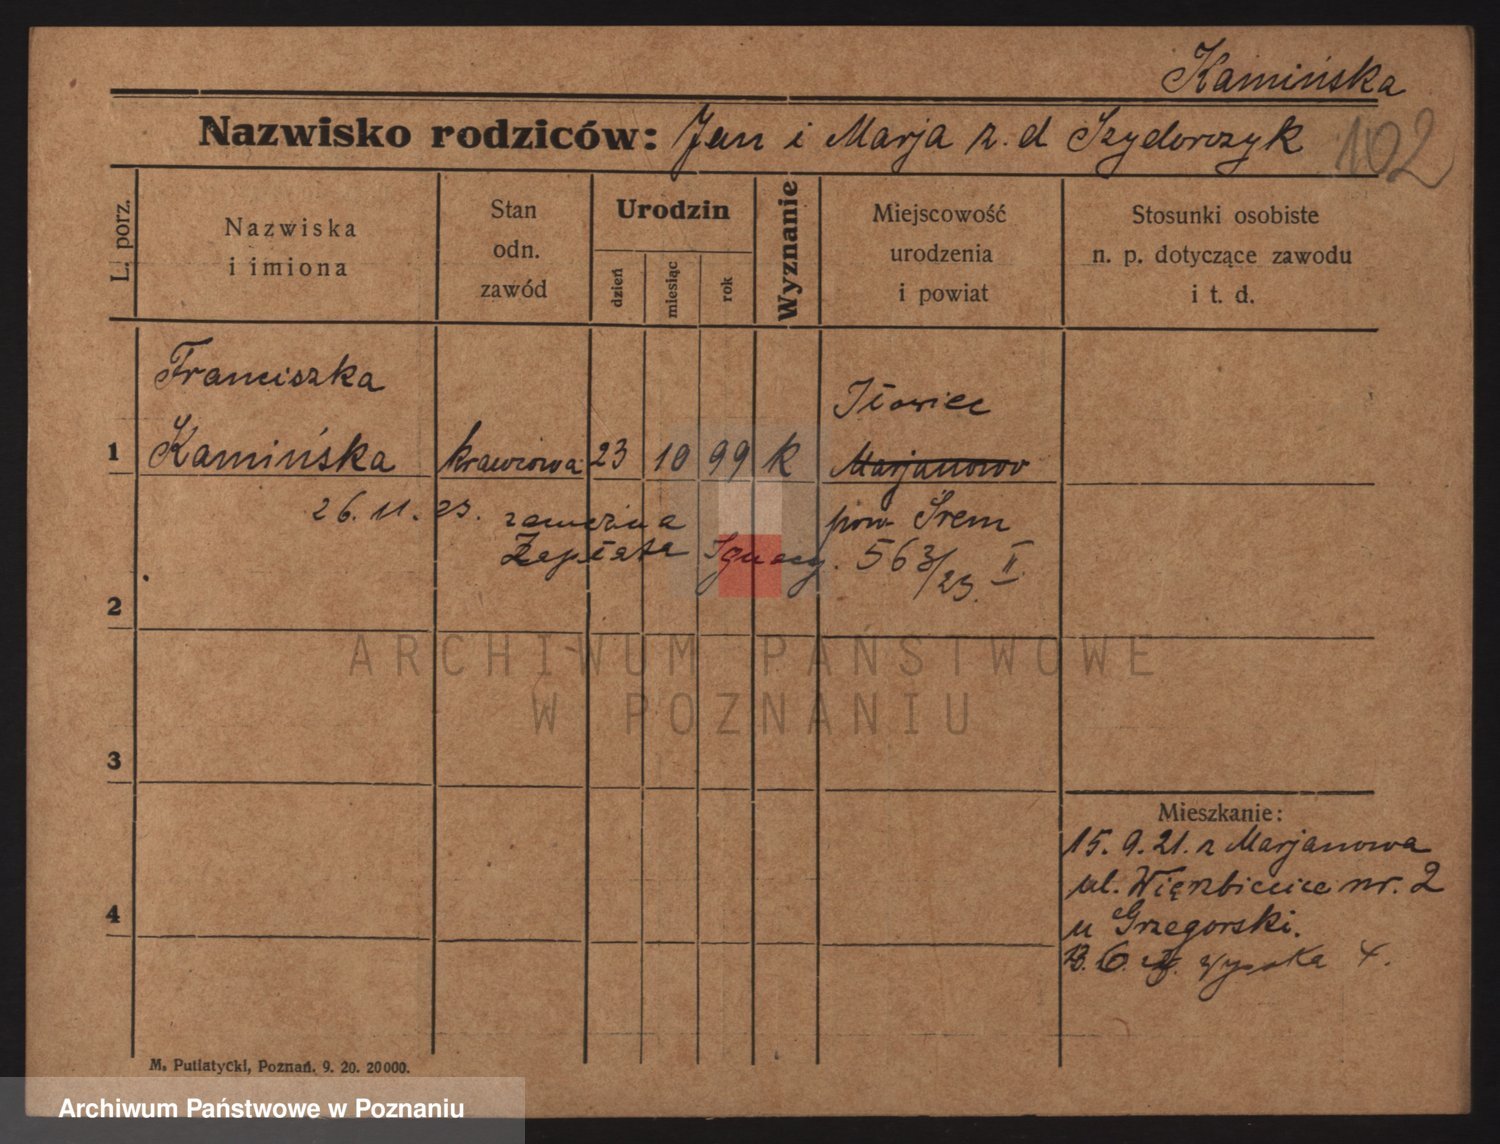 Kamińska
Nazwisko rodziców: Jan i Marja z. d Szydorczyk
102
L. porz.
Nazwiska
i imiona
Stan
odn.
zawód
Urodzin
dzień
miesiąc
rok
Wyznanie
Miejscowość
urodzenia
i powiat
Stosunki osobiste
n. p. dotyczące zawodu
i t. d.
Franciszka
Iłowiec
1 Kamińska krawcowa 23 10 99 k Marjanowo
26. 11. 23. zamężna pow Śrem
Zapłata Ignacy. 563/23. II
2
ARCHIWUM PAŃSTWOWE
W POZNANIU
3
Mieszkanie:
15. 9. 21. z Marjanowa
ul. Wierzbiecice nr. 2
4
u Grzegorski.
13. 6. Wysoka 4.
M. Putiatycki, Poznań. 9. 20. 20000.
Archiwum Państwowe w Poznaniu